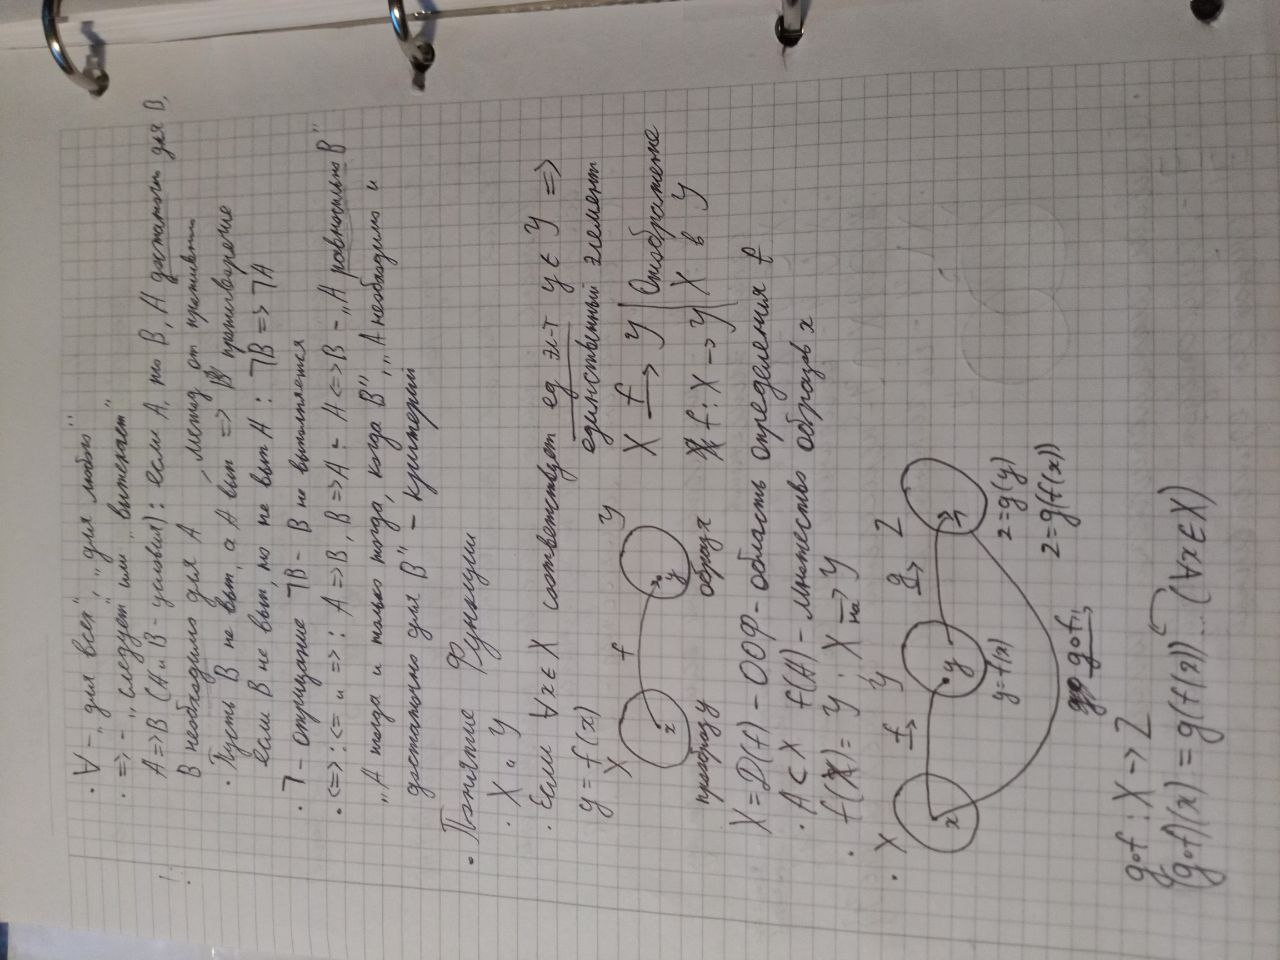 · ∀ – „для всех", „для любого"
· => – „следует" или „вытекает"
! A=>B (A и B – условия): если A, то B, A достаточно для B,
B необходимо для A , метод от противного
· Пусть B не вып, а A вып => противоречие
если B не вып, то не вып A : ¬B => ¬A
· ¬ – отрицание ¬B – B не выполняется
· <=> : <= и => : A=>B, B=>A – A<=>B – „A равносильно B"
„A тогда и только тогда, когда B", „A необходимо и
достаточно для B" – критерий
· Понятие Функции
· X и Y
· Если ∀x∈X соответствует ед эл-т y∈Y =>
y = f(x) единственный элемент
X f Y
x y
прообраз y образ x
X f→ Y | Отображение
f: X → Y | X в Y
X = D(f) – ООФ – область определения f
· A⊂X f(A) – множество образов x
· f(X) = Y ; X →на Y
· X f→ Y g→ Z
x y
y=f(x) z=g(y)
z=g(f(x))
g∘f
g∘f : X → Z
(g∘f)(x) = g(f(x)) (∀x∈X)